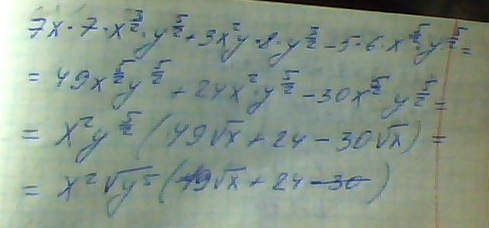 7x·7·x^{3/2}·y^{5/2}+3x²y·8·y^{3/2}-5·6·x^{5/2}·y^{5/2}=
=49x^{5/2}y^{5/2}+24x²y^{5/2}-30x^{5/2}y^{5/2}=
=x²y^{5/2}(49√x+24-30√x)=
=x²√y⁵(19√x+24-30)